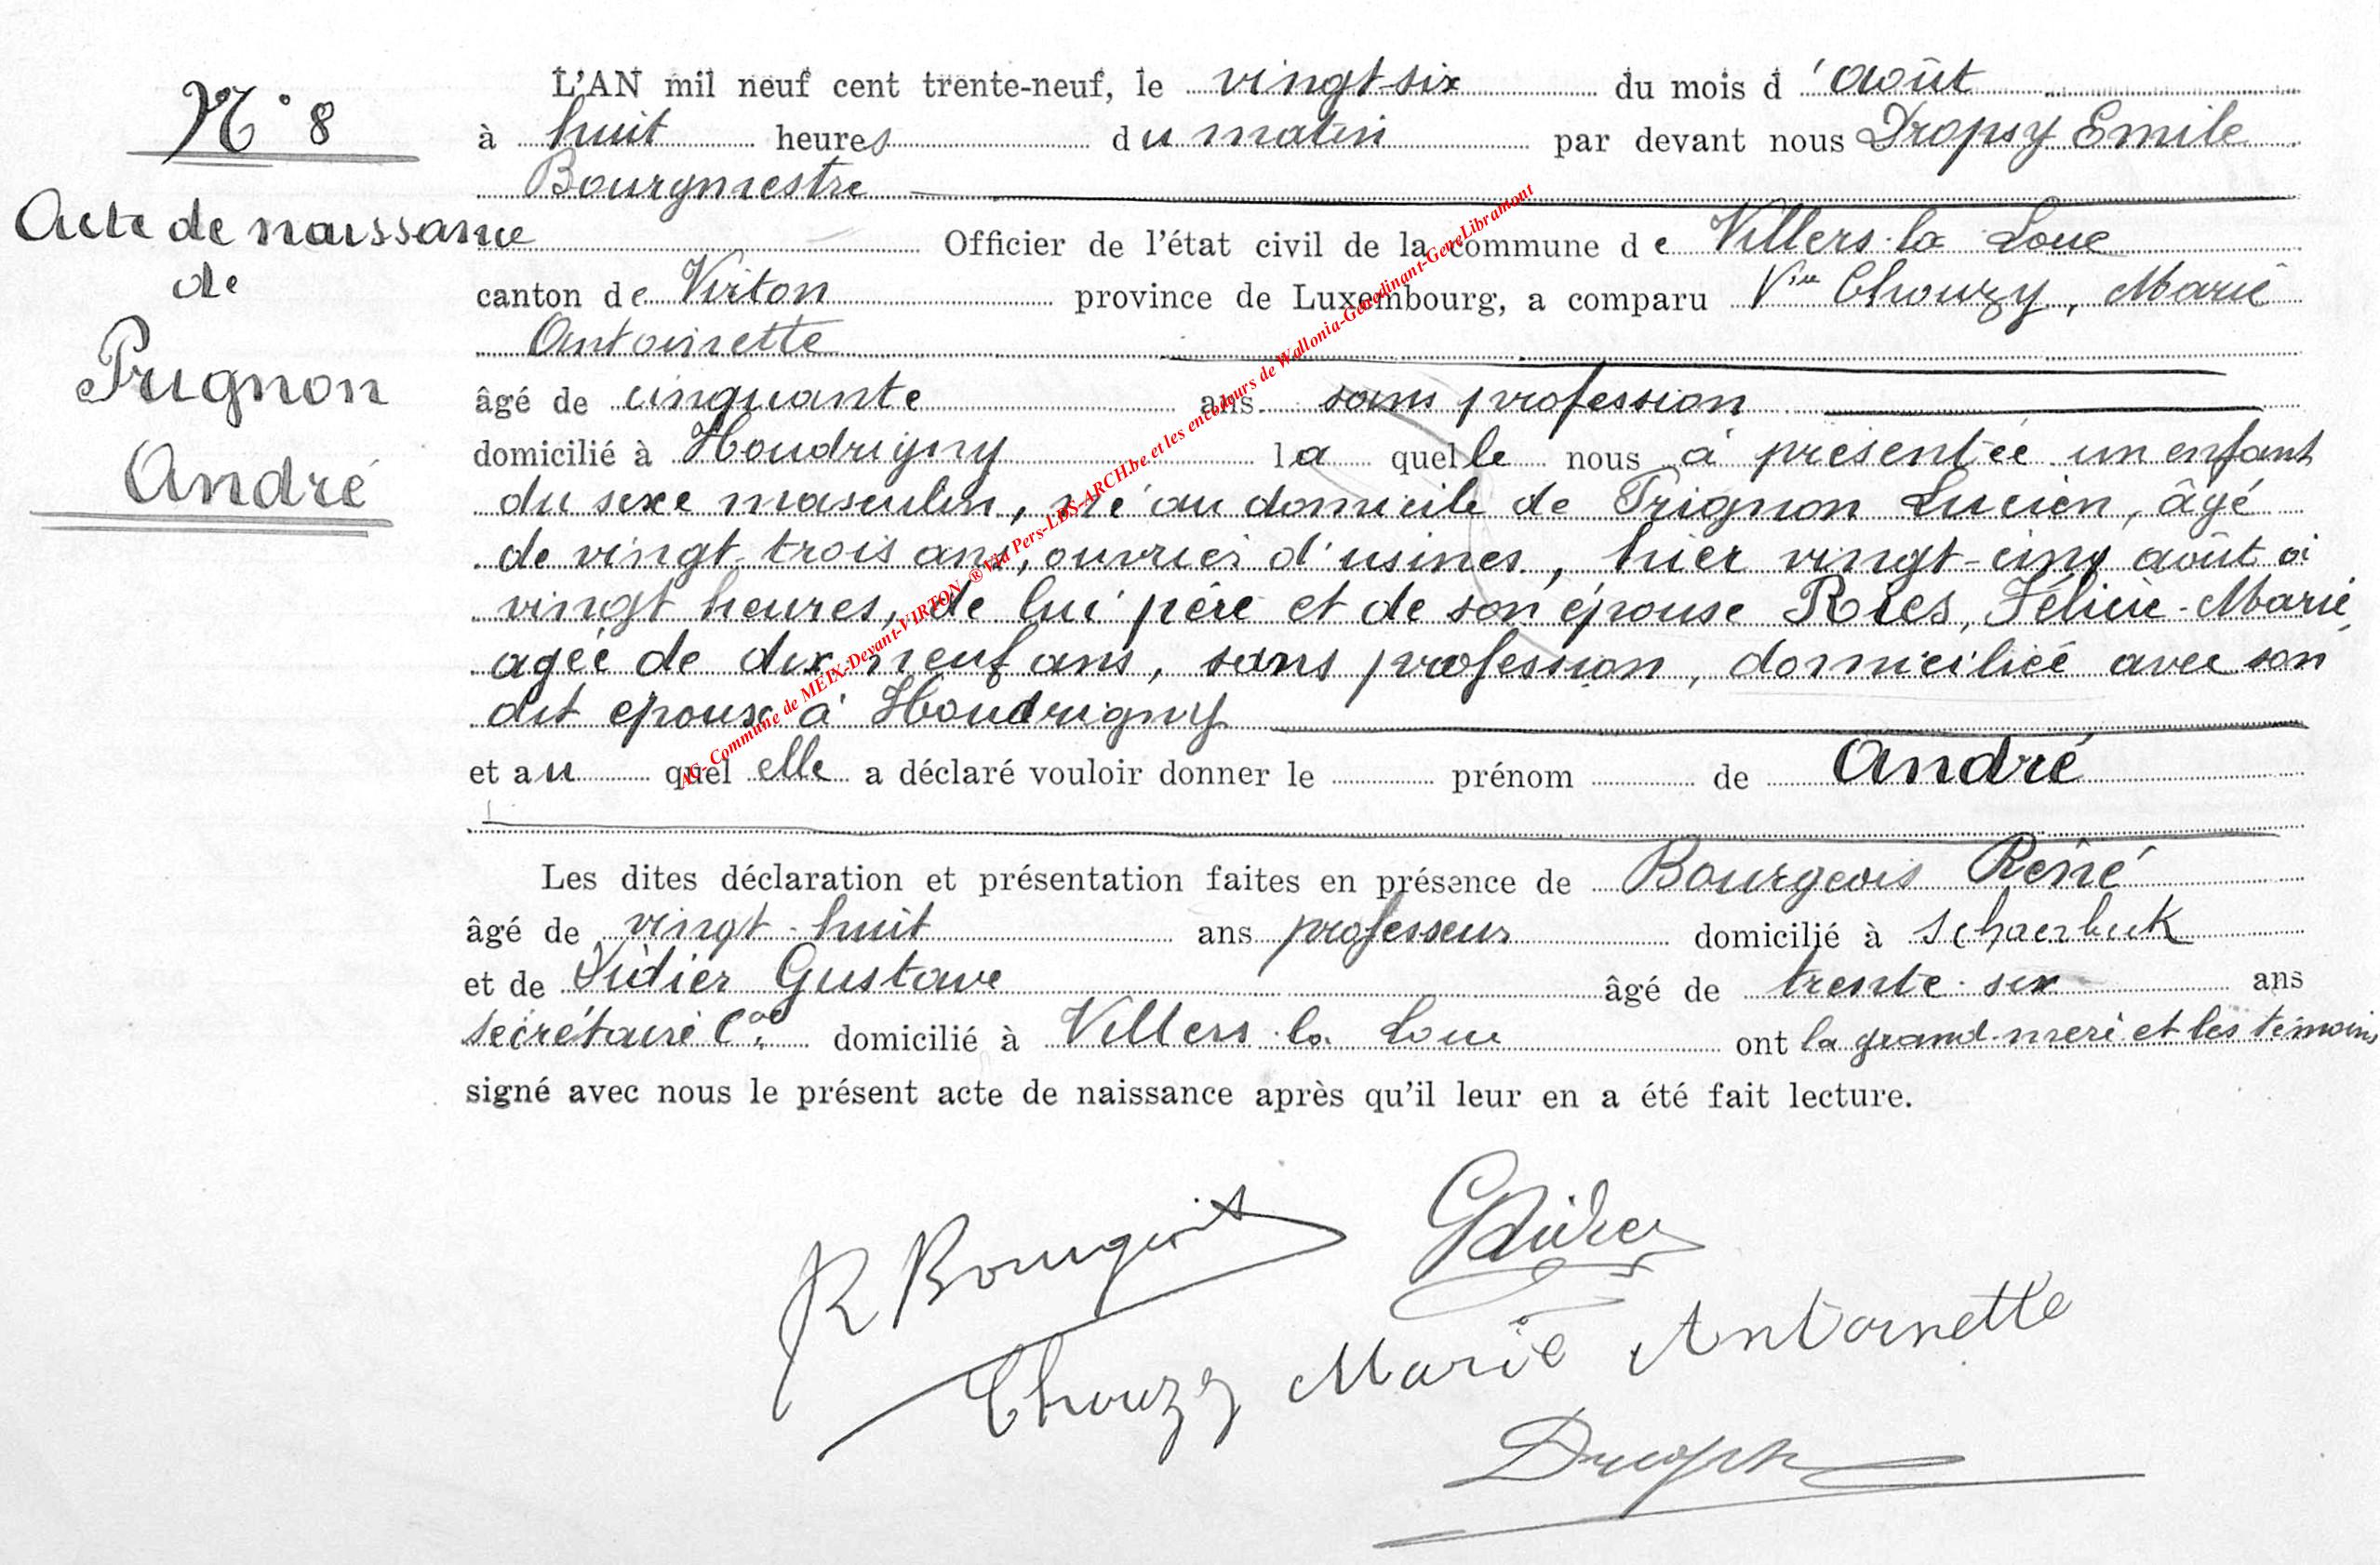 N° 8
Acte de naissance
de
Prignon
André
L'AN mil neuf cent trente-neuf, le vingt-six du mois d'août
à huit heures du matin par devant nous Dropsy Emile
Bourgmestre
Officier de l'état civil de la commune de Villers-la Loue
canton de Virton province de Luxembourg, a comparu Vve Chouzy, Marie
Antoinette
âgé de cinquante ans sans profession
domicilié à Houdrigny laquelle nous a présentée un enfant
du sexe masculin, né au domicile de Prignon Lucien, âgé
de vingt-trois ans, ouvrier d'usines, hier vingt-cinq août à
vingt heures, de lui père et de son épouse Roies, Félicie-Marie,
agée de dix neuf ans, sans profession, domiciliée avec son
dit epoux à Houdrigny
et au quel elle a déclaré vouloir donner le prénom de André
Les dites déclaration et présentation faites en présence de Bourgeois René
âgé de vingt-huit ans professeur domicilié à Schaerbeek
et de Didier Gustave âgé de trente-six ans
secrétaire Cal domicilié à Villers-la Loue ont la grand-mère et les témoins
signé avec nous le présent acte de naissance après qu'il leur en a été fait lecture.
R Bourgeois
GDidier
Chouzy Marie Antoinette
Dropsy
AG-Commune de MEIX-Devant-VIRTON ® Via Pers-LDS-ARCH.be et les encodeurs de Wallonia-Genedinant-GeneLibramont